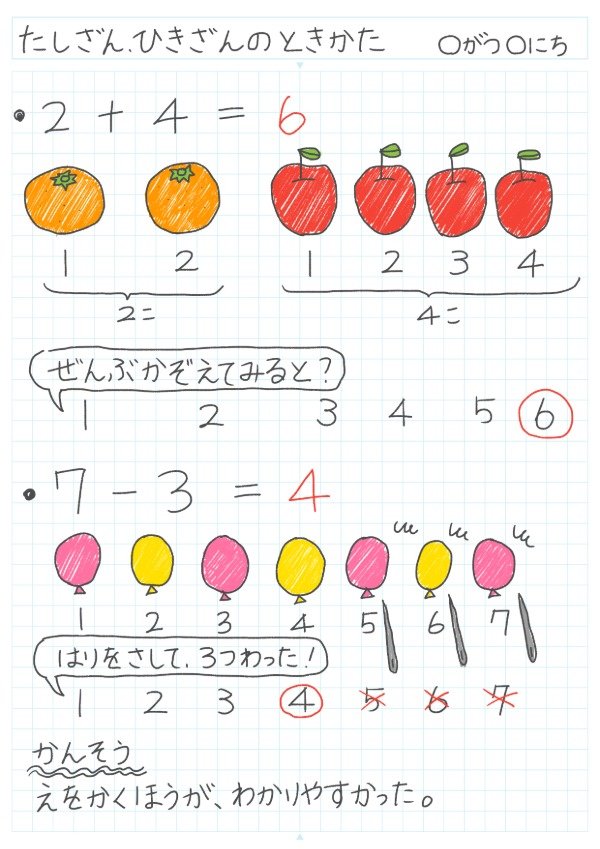 たしざん、ひきざんのときかた ○がつ○にち
・2+4=6
1 2 1 2 3 4
2こ 4こ
ぜんぶかぞえてみると?
1 2 3 4 5 6
・7-3=4
1 2 3 4 5 6 7
はりをさして、3つわった!
1 2 3 4 5 6 7
かんそう
えをかくほうが、わかりやすかった。